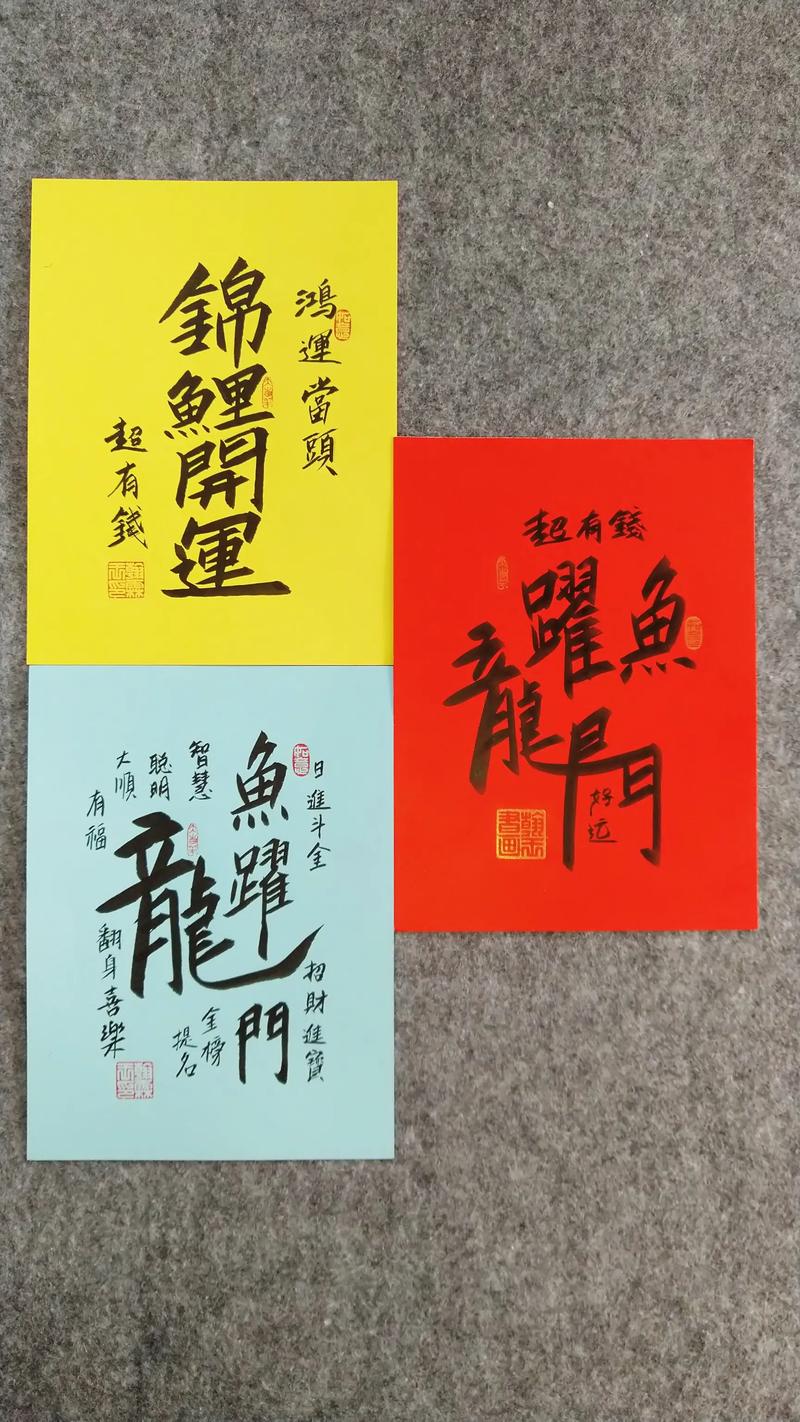 鴻運當頭
錦鯉開運
超有錢
超有錢
魚躍龍門
好运
日進斗金
招財進寶
魚躍龍門
智慧
聪明
大順
有福
金榜
提名
翻身喜樂